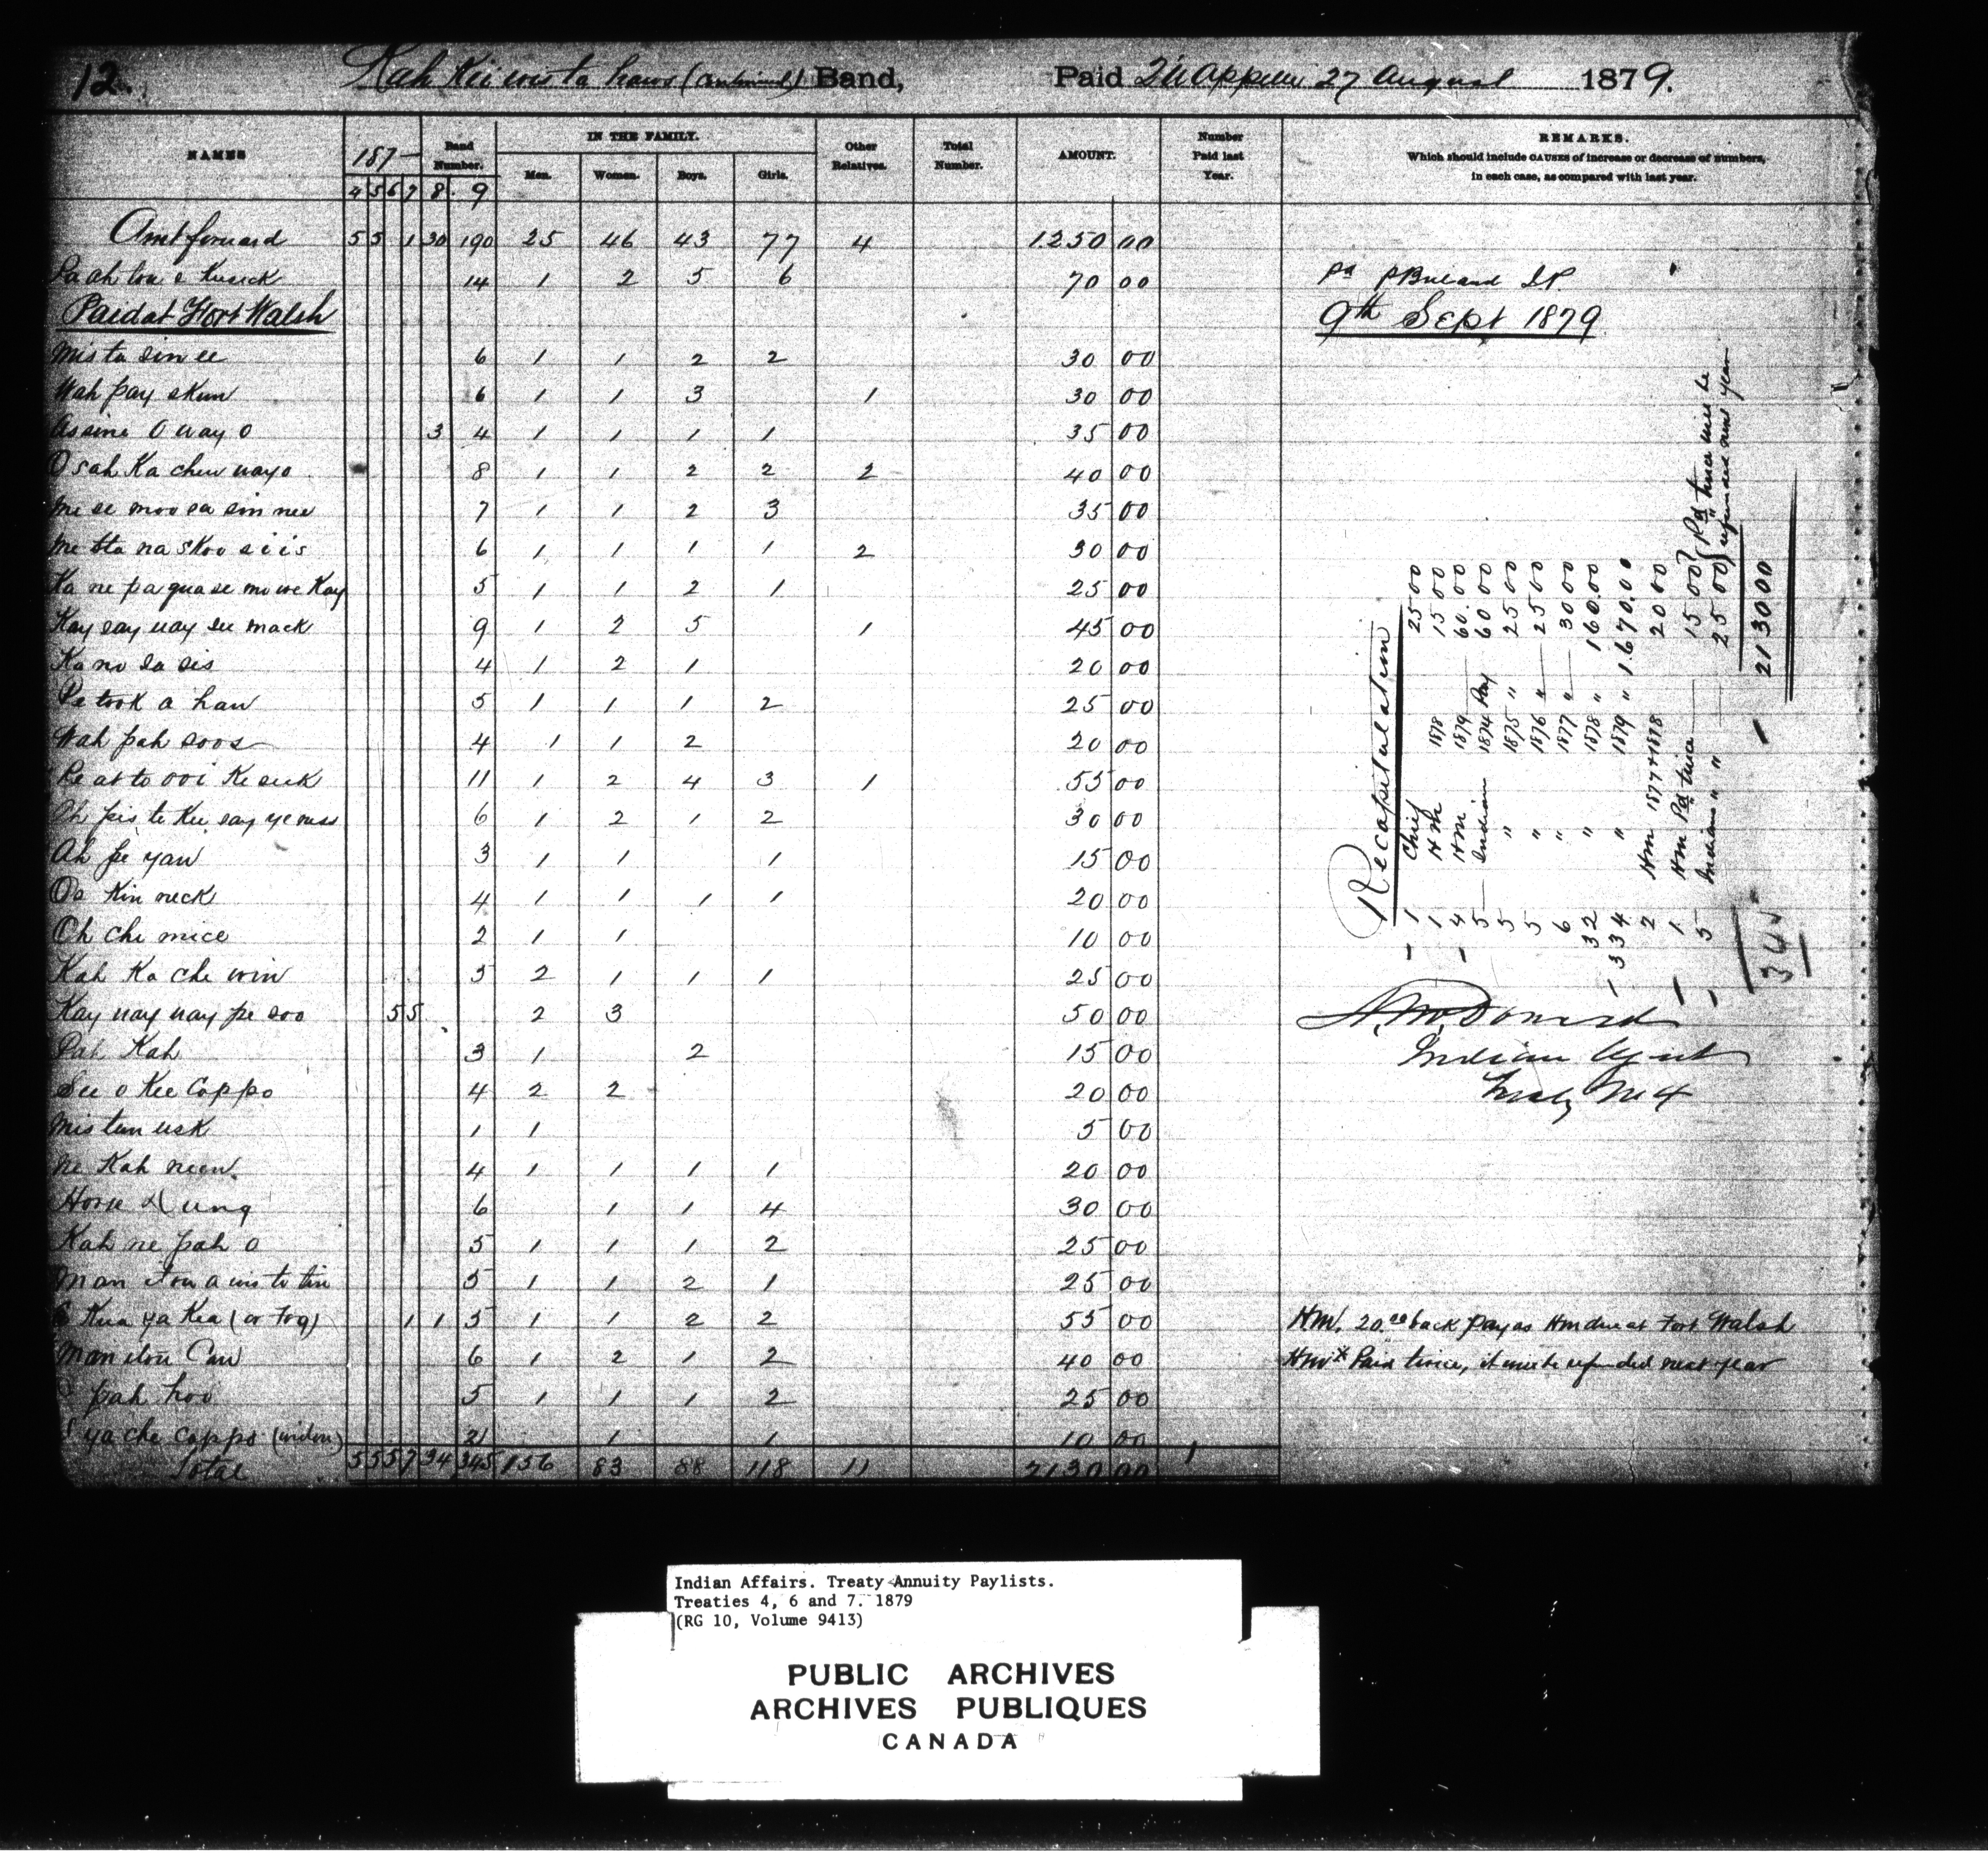 12. Kah Kii wis ta haws (Continued) Band, Paid Qu'Appelle 27 August 1879.
NAMES 187- Band Number. IN THE FAMILY. Other Relatives. Total Number. AMOUNT. Number Paid last Year. REMARKS.
Which should include CAUSES of increase or decrease of numbers, in each case, as compared with last year.
4 5 6 7 8 9 Men. Women. Boys. Girls.
Amt forward 5 5 1 30 190 25 46 43 77 4 1250 00
14 1 2 5 6 70 00 pd
Paid at Fort Walsh 9th Sept 1879
Mis ta sin ee 6 1 1 2 2 30 00
Wah pay skun 6 1 1 3 1 30 00
Assine O way o 3 4 1 1 1 1 35 00
O sah Ka chew wayo 8 1 1 2 2 2 40 00
Me se moo sa sin nee 7 1 1 2 3 35 00
Me sta na skoo siis 6 1 1 1 1 2 30 00
Ka ne pa qua se mo we Kay 5 1 1 2 1 25 00
Kay say way su mack 9 1 2 5 1 45 00
Ka no sa sis 4 1 2 1 20 00
Pe took a haw 5 1 1 1 2 25 00
Wah pah soos 4 1 1 2 20 00
Pe at to ooi Ke seek 11 1 2 4 3 1 55 00
Oh pis te Kee say ye mss 6 1 2 1 2 30 00
Ah pe yaw 3 1 1 1 15 00
Os Kin neck 4 1 1 1 1 20 00
Oh che mice 2 1 1 10 00
Kah Ka che win 5 2 1 1 1 25 00
Kay way way pe soo 5 5 2 3 50 00
Pah Kah 3 1 2 15 00
See o Kee Cappo 4 2 2 20 00
Mis tun usk 1 1 5 00
Ne Kah neen 4 1 1 1 1 20 00
Horse Dung 6 1 1 4 30 00
Kah ne pah o 5 1 1 1 2 25 00
Man itou a wis to tin 5 1 1 2 1 25 00
Kua ya Kea (or Fog) 1 1 5 1 1 2 2 55 00 HM. 20.00 back pay as Hm due at Fort Walsh
Manitou Caw 6 1 2 1 2 40 00 Hm x Paid twice, it will be refunded next year
pah hoo 5 1 1 1 2 25 00
ya che Cappo (widow) 2 1 1 10 00
Total 5 5 5 7 34 345 156 83 88 118 11 2130 00
Recapitulation
1 Chief 25 00
1 H Mn 1878 15 00
4 Hm 1879 60.00
5 Indian 1874 Pay 60 00
5 " 1875 " 25 00
5 " 1876 " 25 00
6 " 1877 " 30 00
32 " 1878 " 160.00
334 " 1879 " 1.670.00
2 Hm 1877 & 1878 20 00
1 Hm Pd twice 15 00
5 Indians " " 25 00
Pd twice will be refunded next year
2130 00
345
A. McDonald
Indian Agent
Treaty No 4
Indian Affairs. Treaty Annuity Paylists.
Treaties 4, 6 and 7. 1879
(RG 10, Volume 9413)
PUBLIC ARCHIVES
ARCHIVES PUBLIQUES
CANADA